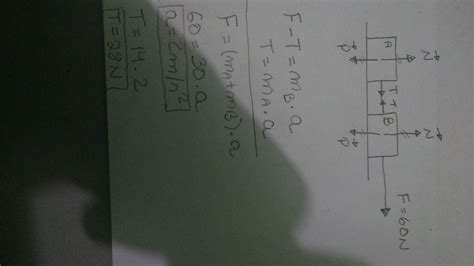 N N
A T T B F=60N
P P
F-T=mB.a
T=mA.a
F=(mA+mB).a
60=30.a
a=2m/s²
T=14.2
T=28N